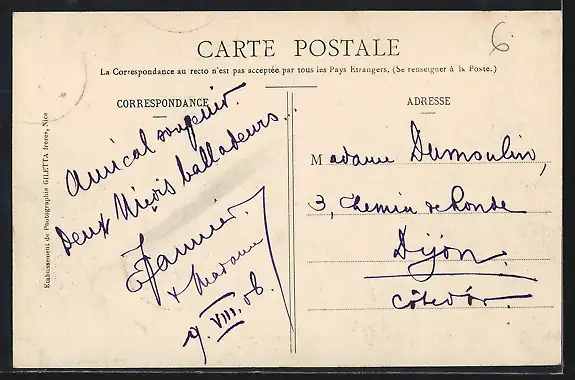 6
CARTE POSTALE
La Correspondance au recto n'est pas acceptée par tous les Pays Etrangers. (Se renseigner à la Poste.)
CORRESPONDANCE
Amical souvenir.
Deux Niçois balladeurs...
& Madame
9. VIII. 06.
ADRESSE
Madame Dumoulin,
3, Chemin de Ronde
Dijon.
Côte d'or.
Etablissement de Photographie GILETTA frères, Nice